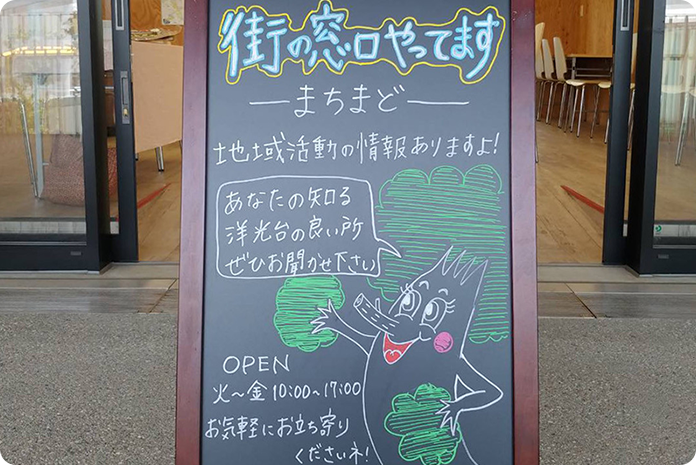 街の窓口やってます
―まちまど―
地域活動の情報ありますよ!
あなたの知る
洋光台の良い所
ぜひお聞かせ下さい
OPEN
火~金 10:00~17:00
お気軽にお立ち寄り
くださいネ!